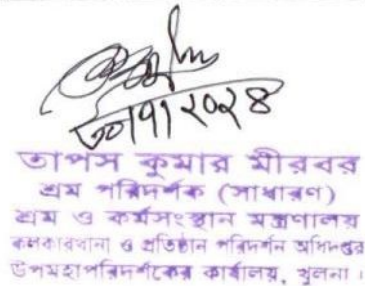 ৩০।৭।২০২৪
তাপস কুমার মীরবর
শ্রম পরিদর্শক (সাধারণ)
শ্রম ও কর্মসংস্থান মন্ত্রণালয়
কলকারখানা ও প্রতিষ্ঠান পরিদর্শন অধিদপ্তর
উপমহাপরিদর্শকের কার্যালয়, খুলনা।